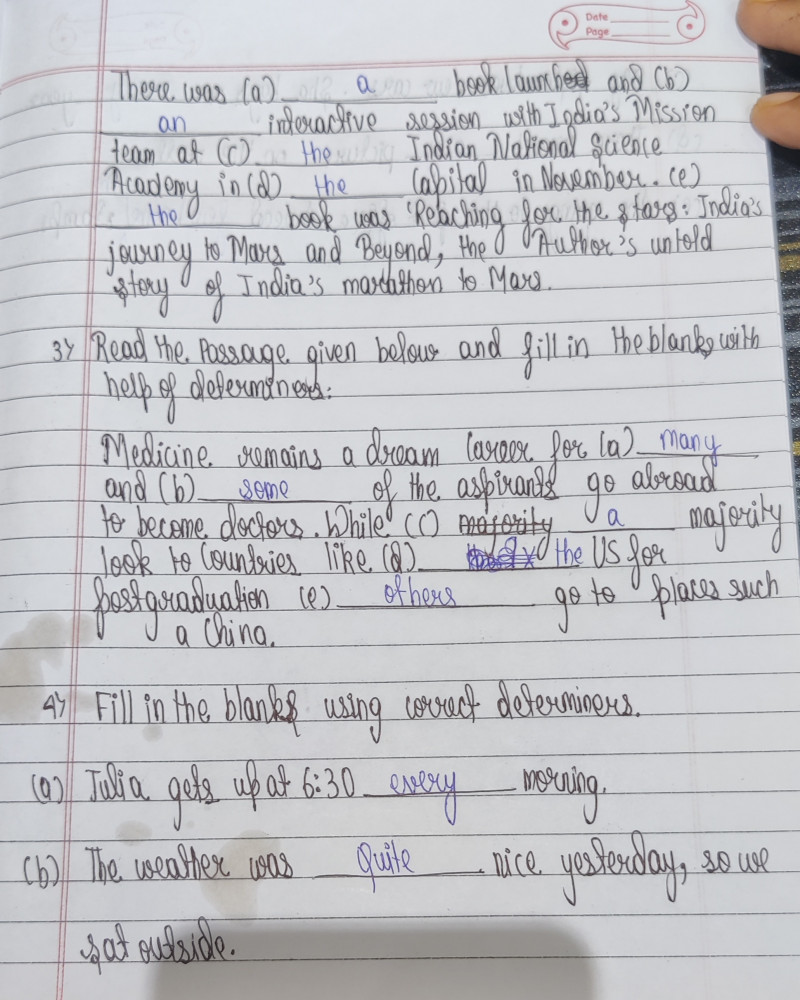 Date
Page
There was (a) a book launched and (b)
an interactive session with India's Mission
team at (c) the Indian National Science
Academy in (d) the Capital in November. (e)
the book was 'Reaching for the stars: India's
journey to Mars and Beyond, the Author's untold
story of India's marathon to Mars.
3) Read the Passage given below and fill in the blanks with
help of determiners:
Medicine remains a dream career for (a) many
and (b) some of the aspirants go abroad
to become doctors. While (c) majority a majority
look to Countries like (d) the US for
postgraduation (e) others go to places such
a China.
4) Fill in the blanks using correct determiners.
(a) Julia gets up at 6:30 every morning.
(b) The weather was quite nice yesterday, so we
sat outside.